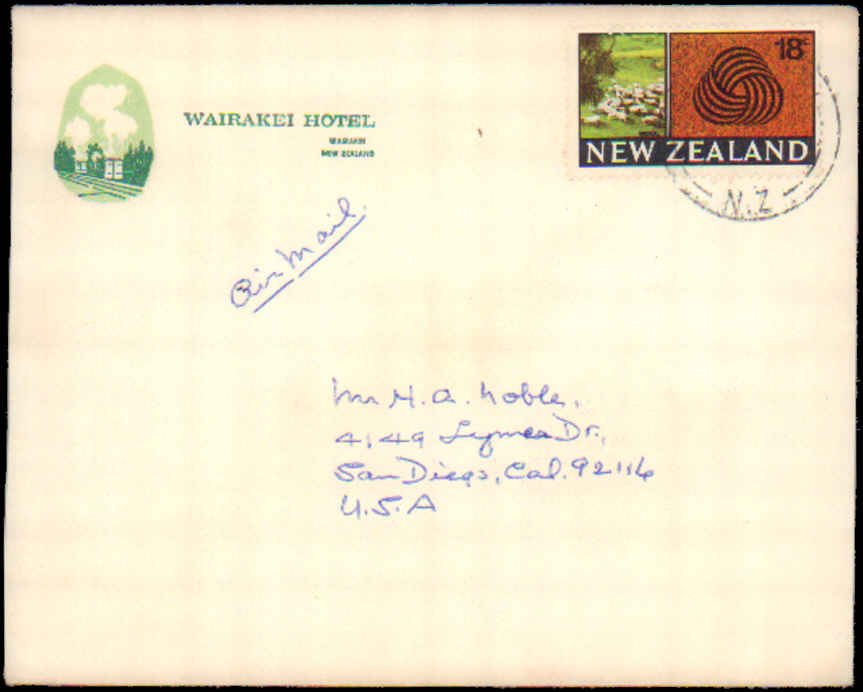 WAIRAKEI HOTEL
WAIRAKEI
NEW ZEALAND
18c
NEW ZEALAND
N.Z.
Air Mail.
Mr H. A. Noble,
4149 Lymer Dr.,
San Diego, Cal. 92116
U.S.A